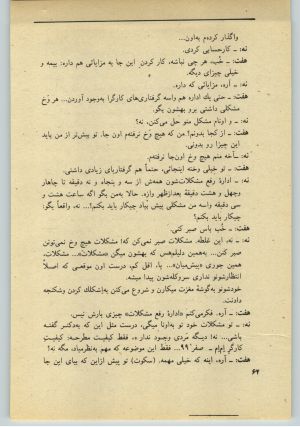 واگذار کردم به‌اون...
نه: ـ کارحسابی کردی.
هفت: ـ خُب، هر چی نباشه، کار کردن این جا یه مزایائی هم داره: بیمه و
خیلی چیزای دیگه.
نه: ـ آره، مزایائی که داره.
هفت: ـ حتی یك اداره هم واسه گرفتاری‌های کارگرا به‌وجود آوردن... هر وَخ
مشکلی داشتی برو بهشون بگو.
نه: ـ و اونام مشکل منو حل می‌کنن، نه؟
هفت: ـ از کجا بدونم؟ من که هیچ وَخ نرفته‌م اون جا. تو پیش‌تر از من باید
این چیزا رو بدونی.
نه: ـ آخه منم هیچ وخ اون‌جا نرفته‌م.
هفت: ـ تو خیلی وخته اینجائی، حتماً هم گرفتاریای زیادی داشتی.
نه: ـ ادارهٔ رفع مشکلات‌شون همه‌ش از سه و پنجاه و نه دقیقه تا چاهار
وچهل و هشت دقیقهٔ بعدازظهر وازه. حالا به‌من بگو اگه ساعت هشت و
سی دقیقه واسه من مشکلی پیش بیاد چیکار باید بکنم؟... نه، واقعاً بگو:
چیکار باید بکنم؟
هفت: ـ خُب باس صبر کنی.
نه: ـ نه، این غلطه. مشکلات صبر نمی‌کن که! مشکلات هیچ وخ نمی‌تونن
صبر کنن... به‌همین دلیلم‌هس که بهشون میگن «مشکلات»... مشکلات،
همین جوری «پیش‌میان»... یا، اقل کم، درست اون موقعی که اصلاً
انتظارشونو نداری سروکله‌شون پیدا میشه.
خودشونو به‌گوشهٔ مغزت میکارن و شروع می‌کنن به‌اشکلك کردن وشکنجه
دادنت.
هفت: ـ آره. فکرمی‌کنم «ادارهٔ رفع مشکلات» چیزی بارش نیس.
نه: ـ تو مشکلات خود تو به‌اونا میگی، درست مثل این که به‌دکتر گفته
باشی...! نه! دیگه مَردی وجود نداره. فقط کیفیت مطرحه: کیفیتِ
کارگرِ اِم‌اِم ـ صفر ۹۹... فقط این موضوعه که مهم به‌نظرمیاد، مگه نه؟
هفت: ـ آره، اینه که خیلی مهمه. (سکوت) تو پیش ازاین که بیای این جا
۶۲